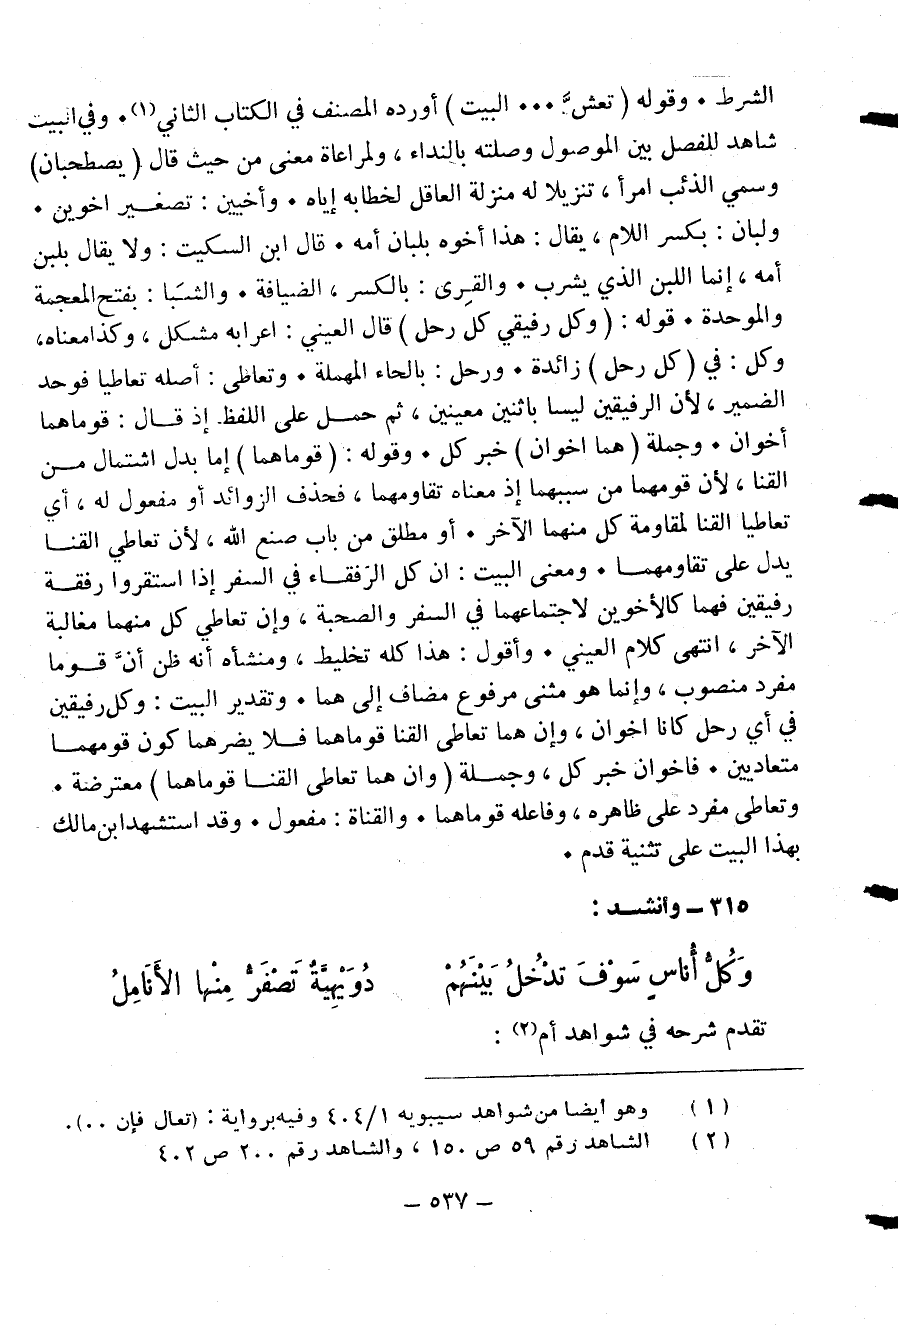 الشرط • وقوله ( تعشَّ ••• البيت ) أورده المصنف في الكتاب الثاني(١) • وفي البيت
شاهد للفصل بين الموصول وصلته بالنداء ، ولمراعاة معنى من حيث قال ( يصطحبان )
وسمي الذئب امرأ ، تنزيلا له منزلة العاقل لخطابه إياه • وأخيين : تصغير اخوين •
ولبان : بكسر اللام ، يقال : هذا أخوه بلبان أمه • قال ابن السكيت : ولا يقال بلبن
أمه ، إنما اللبن الذي يشرب • والقِرى : بالكسر ، الضيافة • والشَبا : بفتح المعجمة
والموحدة • قوله : ( وكل رفيقي كل رحل ) قال العيني : اعرابه مشكل ، وكذا معناه ،
وكل : في ( كل رحل ) زائدة • ورحل : بالحاء المهملة • وتعاطى : أصله تعاطيا فوحد
الضمير ، لأن الرفيقين ليسا باثنين معينين ، ثم حمل على اللفظ إذ قال : قوماهما
أخوان • وجملة ( هما اخوان ) خبر كل • وقوله : ( قوماهما ) إما بدل اشتمال من
القنا ، لأن قومهما من سببهما إذ معناه تقاومهما ، فحذف الزوائد أو مفعول له ، أي
تعاطيا القنا لمقاومة كل منهما الآخر • أو مطلق من باب صنع الله ، لأن تعاطي القنا
يدل على تقاومهما • ومعنى البيت : ان كل الرفقاء في السفر إذا استقروا رفقة
رفيقين فهما كالأخوين لاجتماعهما في السفر والصحبة ، وإن تعاطي كل منهما مغالبة
الآخر ، انتهى كلام العيني • وأقول : هذا كله تخليط ، ومنشأه أنه ظن أنَّ قوما
مفرد منصوب ، وإنما هو مثنى مرفوع مضاف إلى هما • وتقدير البيت : وكل رفيقين
في أي رحل كانا اخوان ، وإن هما تعاطى القنا قوماهما فلا يضرهما كون قومهما
متعاديين • فاخوان خبر كل ، وجملة ( وان هما تعاطى القنا قوماهما ) معترضة •
وتعاطى مفرد على ظاهره ، وفاعله قوماهما • والقناة : مفعول • وقد استشهد ابن مالك
بهذا البيت على تثنية قدم •
٣١٥ ــ وأنشد :
وَكُلُّ أُناسٍ سَوْفَ تدْخُلُ بَيْنَهُمْ    دُوَيْهِيَّةٌ تَصْفَرُّ مِنْها الأَنَامِلُ
تقدم شرحه في شواهد أم(٢) :
(١) وهو أيضا من شواهد سيبويه ٤٠٤/١ وفيه برواية : (تعال فإن ٠٠).
(٢) الشاهد رقم ٥٩ ص ١٥٠ ، والشاهد رقم ٢٠٠ ص ٤٠٢
ــ ٥٣٧ ــ